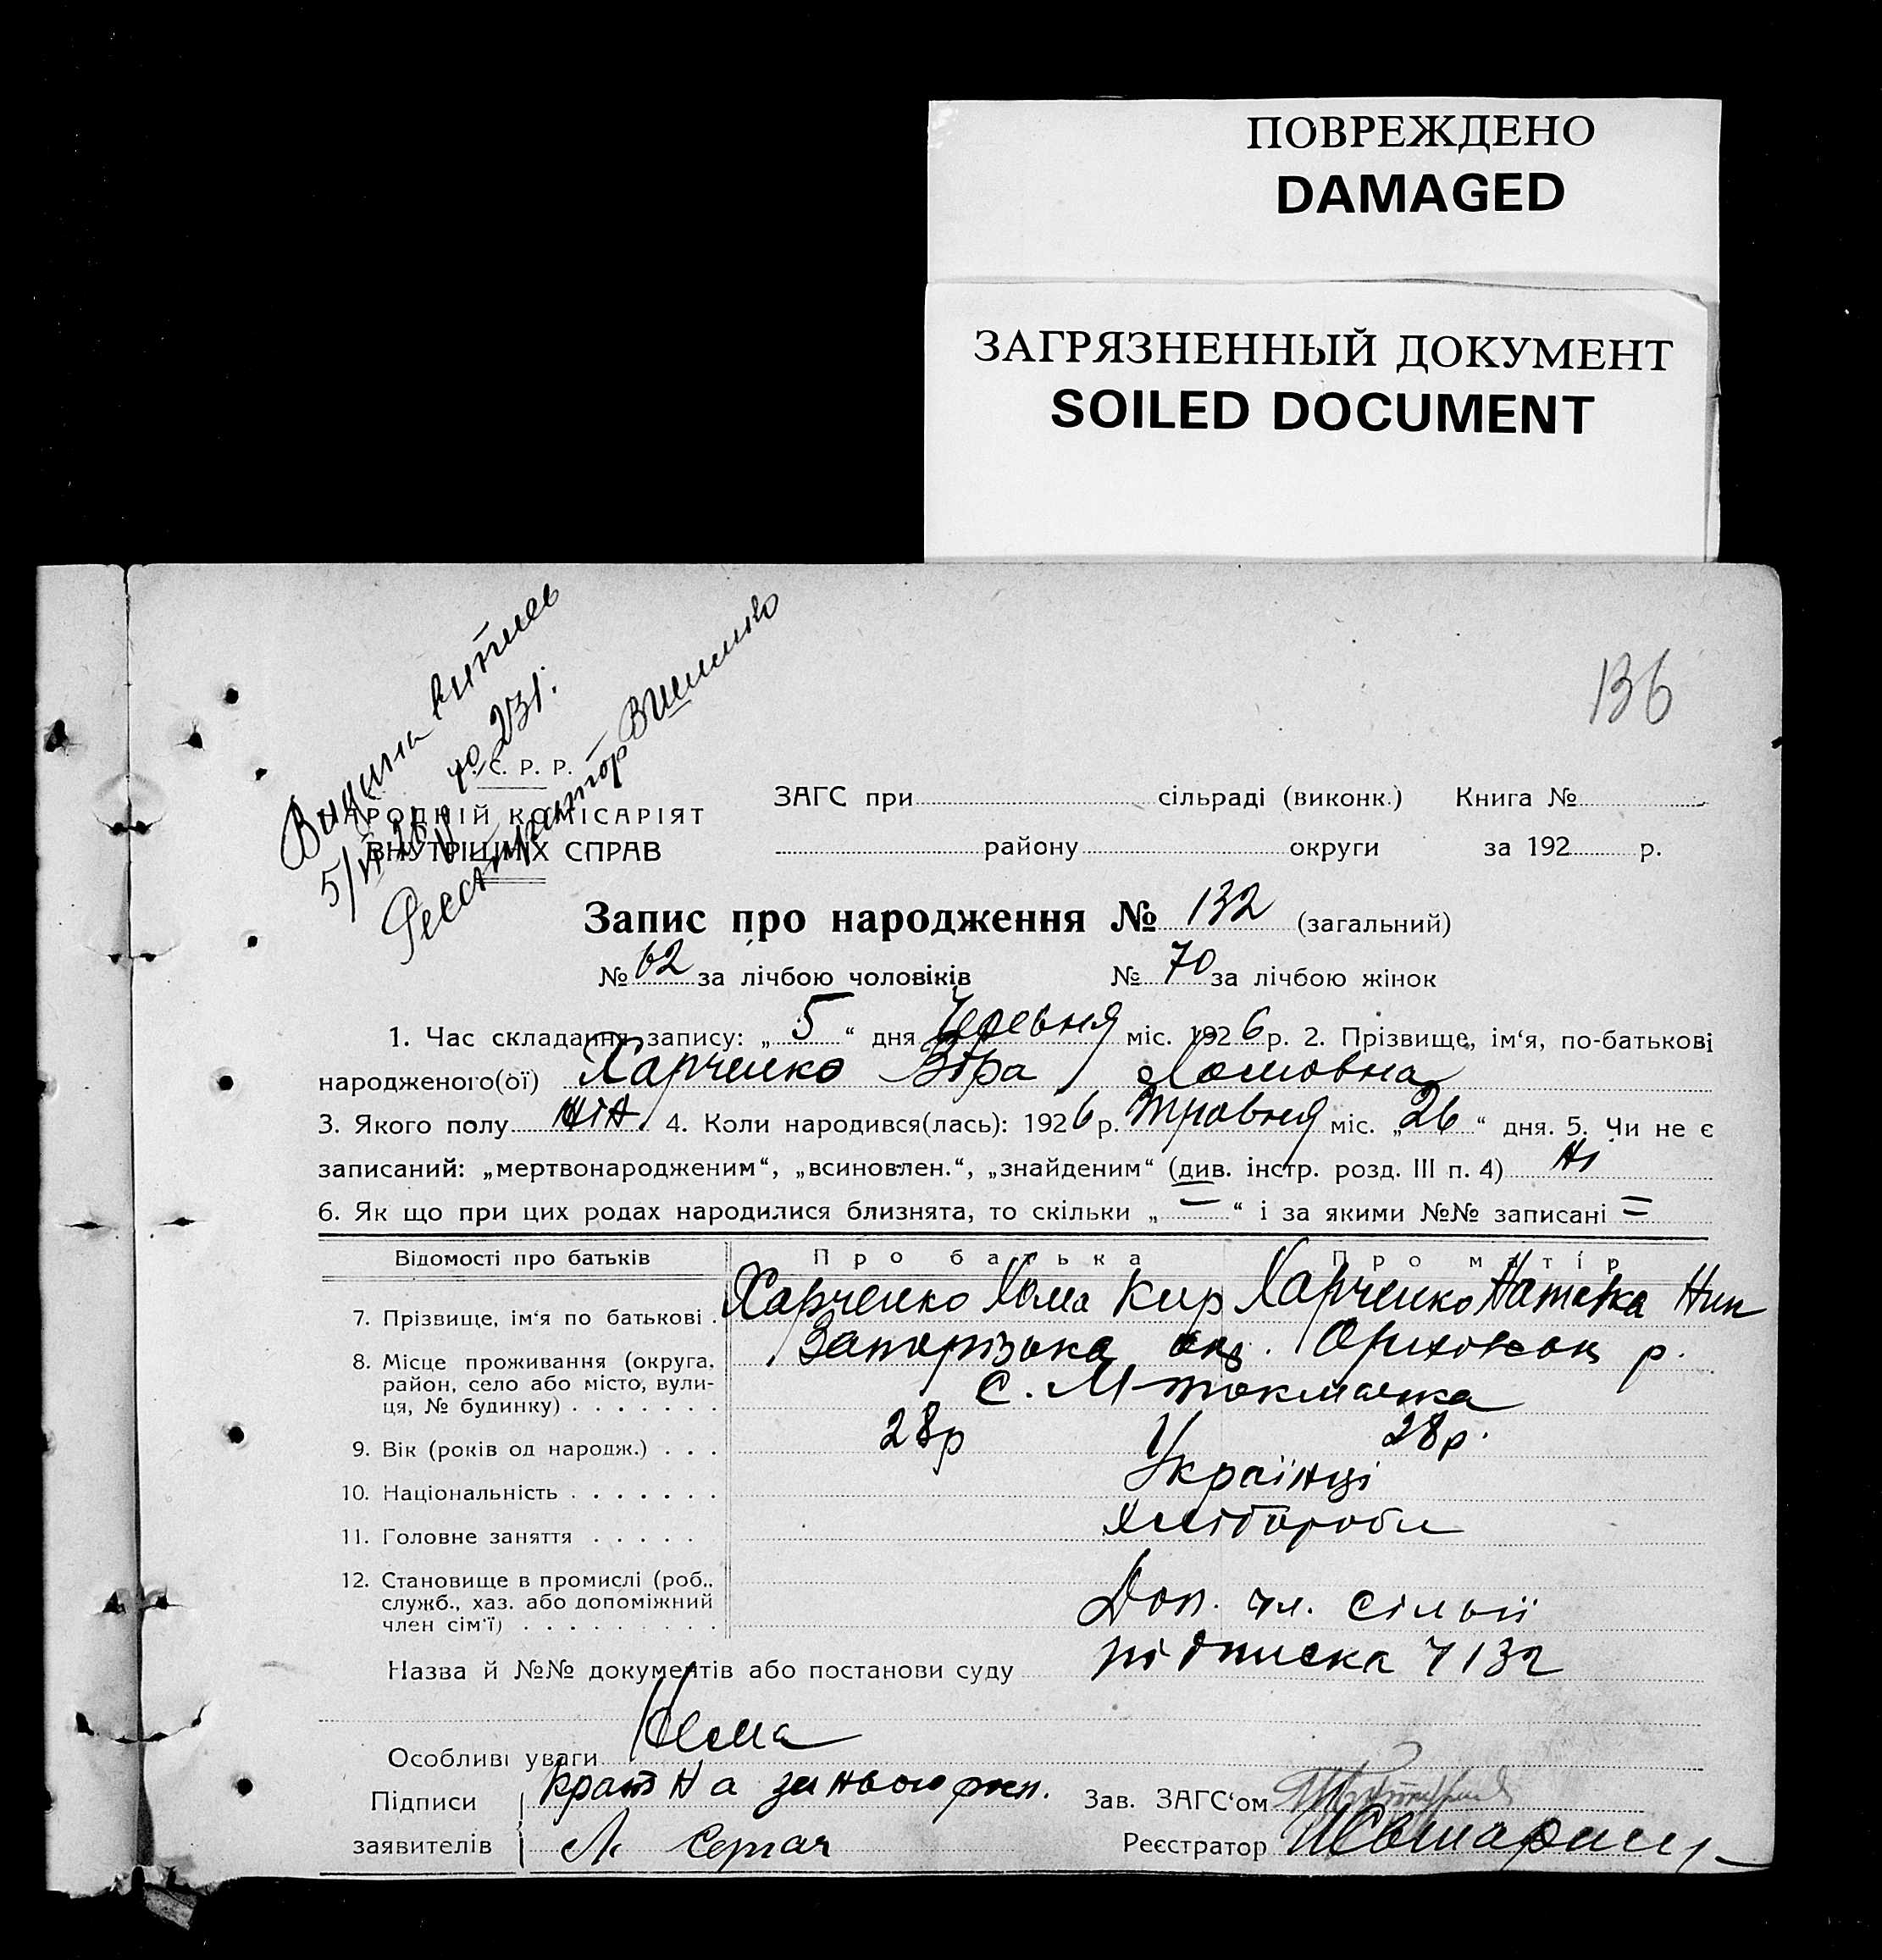 ПОВРЕЖДЕНО
DAMAGED
ЗАГРЯЗНЕННЫЙ ДОКУМЕНТ
SOILED DOCUMENT
136
Видана витись
5/VI 26 р. 40 231.
Реєстратор
С. Р. Р.
НАРОДНІЙ КОМІСАРІЯТ
ВНУТРІШНІХ СПРАВ
ЗАГС при сільраді (виконк.) Книга №
району округи за 192 р.
Запис про народження № 132 (загальний)
№ 62 за лічбою чоловіків № 70 за лічбою жінок
1. Час складання запису: „ 5 “ дня Червня міс. 1926 р. 2. Прізвище, ім‘я, по-батькові
народженого(ої) Харченко Віра Хомовна
3. Якого полу жін. 4. Коли народився(лась): 1926 р. Травня міс. „ 26 “ дня. 5. Чи не є
записаний: „мертвонародженим“, „всиновлен.“, „знайденим“ (див. інстр. розд. III п. 4) Ні
6. Як що при цих родах народилися близнята, то скільки „ = “ і за якими №№ записані =
Відомості про батьків Про батька Про матір
7. Прізвище, ім‘я по батькові . Харченко Хома Кир Харченко Наталка Ник
8. Місце проживання (округа, Запорізька окр. Оріхівськ р.
район, село або місто, вули- С. М токмачка
ця, № будинку) . . . . . . .
9. Вік (років од народж.) . . . 28р 28р.
10. Національність . . . . . . . Українці
11. Головне заняття . . . . . Хлібороби
12. Становище в промислі (роб.,
служб., хаз. або допоміжний Доп. чл. сімьії
член сім‘ї) . . . . . . . . .
Назва й №№ документів або постанови суду підписка ч 132
Особливі уваги Нема
Підписи за нього росп. Зав. ЗАГС‘ом
заявителів Л. Сергач Реєстратор